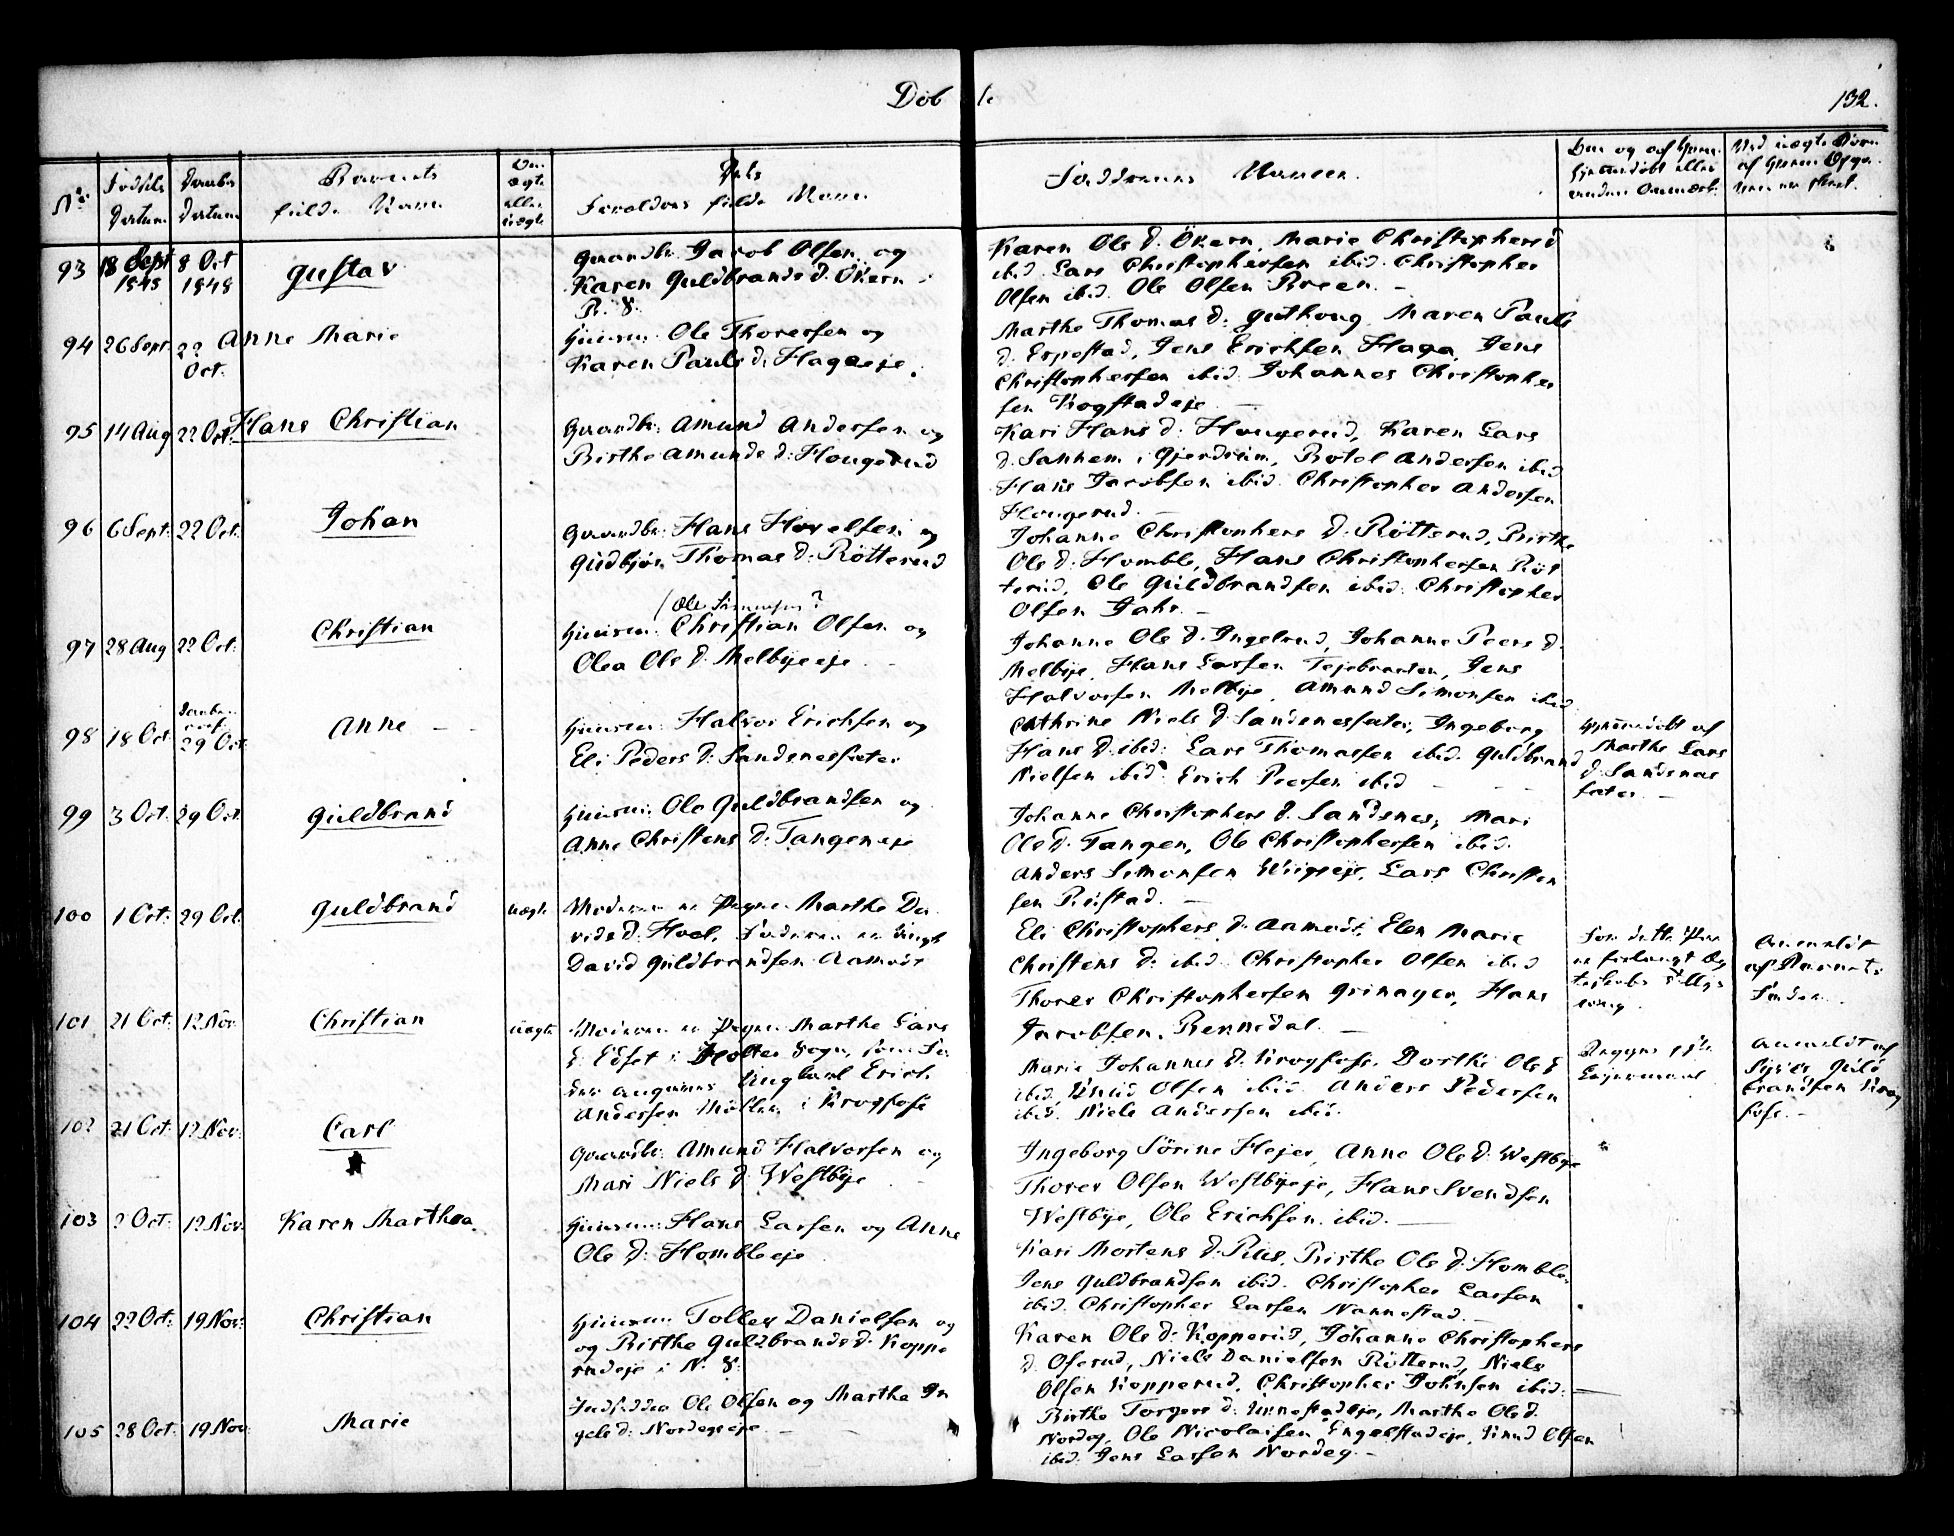 Døbte
132.
No
Fødsels Datum
Daabs Datum
Barnets fulde Navn
Om ægte eller uægte
Dets Forældres fulde Navn
Faddrenes Navne.
93 18 Sept 1848 8 Oct 1848 Gustav
Gaardbr: Jacob Olsen og
Karen Guldbrands d. Økern i
N. 8.
Karen Ols d: Økern, Marie Christophersd
ibid. Lars Christophersen ibid. Christopher
Olsen ibid. Ole Olsen Breen. –
94 26 Sept 22 Oct. Anne Marie
Huusm: Ole Thoresen og
Karen Pauls d. Hagaeje.
Marthe Thomas d: Guthoug, Maren Pauls
d. Erpestad, Jens Erichsen Haga, Jens
Christophersen ibid. Johannes Christopher
sen Kogstadeje –
95 14 Aug 22 Oct. Hans Christian
Gaardbr: Amund Andersen og
Birthe Amunds d: Hougerud
Kari Hans d: Hougerud, Karen Lars
d. Sanhem i Gjerdrum, Botol Andersen ibid
Hans Jacobsen ibid. Christopher Andersen
Hougerud. –
96 6 Sept. 22 Oct. Johan
Gaardbr: Hans Hovelsen og
Gudbjør Thomas d: Røtterud
Johanne Christophers d. Røtterud, Birthe
Ols d. Homble, Hans Christophersen Røt
terud, Ole Guldbrandsen ibid. Christopher
Olsen Jahr. –
97 28 Aug 22 Oct: Christian
(Ole Simensen?
Huusm: Christian Olsen og
Olea Ols d. Melbyeeje –
Johanne Ols d. Ingelsrud, Johanne Peers d.
Melbye, Hans Larsen Tejebraaten, Jens
Halvorsen Melbye, Amund Simonsen ibid
98 18 Oct. 29 Oct Anne –
Huusm: Halvor Erichsen og
Eli Peders d: Sandsnessæter
Cathrine Niels d. Sandsnessæter, Ingeborg
Hans d. ibid: Lars Thomassen ibid. Guldbrand
Nielsen ibid. Erich Peersen ibid – – –
Hjemmedøbt af
Marthe Lars
d. Sandsnes
sæter. –
99 3 Oct. 29 Oct Guldbrand
Huusm: Ole Guldbrandsen og
Anne Christens d: Tangeneje
Johanne Christophers d. Sandsnes, Mari
Ols d. Tangen, Ole Christophersen ibid.
Anders Simonsen Wiigseje, Lars Christen
sen Røistad. –
100 1 Oct: 29 Oct. Guldbrand uægte
Moderen er Pigen Marthe Da
vids d: Hoel, Faderen er Ungk
David Guldbrandsen Aamodt
Eli Christophers d. Aamodt, Elen Marie
Christens d: ibid. Christopher Olsen ibid
Thorer Christophersen Grinager, Hans
Jacobsen, Rennedal. –
For dette Par
er forlangt Æg
teskabs
Anmeldt
af Barnets
Fader.
101 21 Oct: 12 Nov. Christian uægte
Moderen er Pigen Marthe Lars
d. Edset i Holter Sogn, som Fa
der angives Ungkarl Erich
Andersen Møller i Krogfos
Marie Johannes d. Krogfos, Dorthe Ols d
ibid, Knud Olsen ibid. Anders Pedersen
ibid. Niels Andersen ibid.
Begges 1ste
Leiermaal
Anmeldt af
Syver Guld
brandsen Krog
fos. –
102 21 Oct: 12 Nov: Carl
Gaardbr: Amund Halvorsen og
Mari Niels d Westbye –
Ingeborg Sørine Hejer, Anne Ols d: Westbye
Thorer Olsen Westbyeje, Hans Svendsen
Westbye, Ole Erichsen ibid. –
103 2 Oct: 12 Nov. Karen Marthea
Huusm: Hans Larsen og Anne
Ols d: Hombleeje
Kari Mortens d: Riis, Birthe Ols d. Homble.
Jens Guldbrandsen ibid. Christopher Larsen
ibid. Christopher Larsen Nannestad. –
104 22 Oct: 19 Nov: Christian
Huusm: Tollev Danielsen og
og Birthe Guldbrands d: Koppe
rudeje i N. 8.
Karen Ols d: Kopperud, Johanne Christophers
d. Oserud, Niels Danielsen Røtterud, Niels
Olsen Kopperud, Christopher Johnsen ibid: –
105 28 Oct: 19 Nov: Marie
Indsidder Ole Olsen og Marthe In
gels d: Nordbyeje – –
Birthe Torgers d: Unnestadeje, Marthe Ols d.
Nordby, Ole Nicolaisen Engelstadeje, Knud Olsen
ibid. Jens Larsen Nordby. –